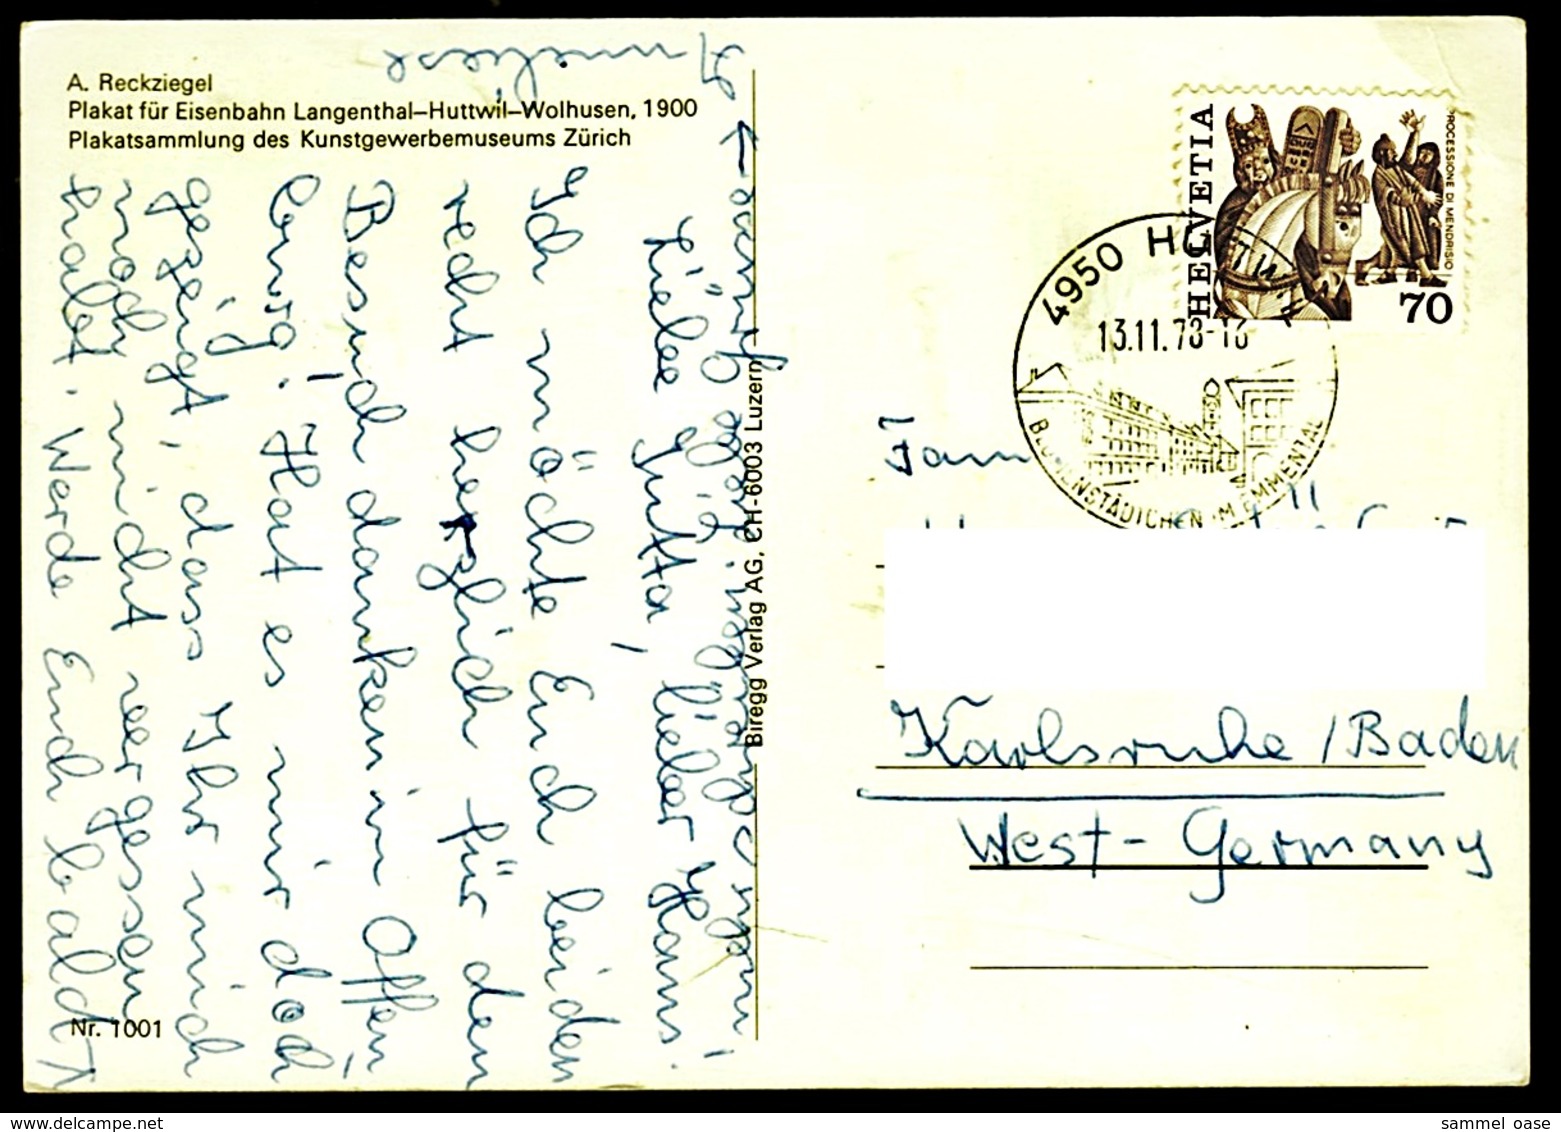 A. Reckziegel
Plakat für Eisenbahn Langenthal–Huttwil–Wolhusen, 1900
Plakatsammlung des Kunstgewerbemuseums Zürich
Liebe Jutta, lieber Hans!
Ich möchte Euch beiden
recht herzlich für den
Besuch danken in Offen-
burg! Hat es mir doch
gezeigt, dass Ihr mich
noch nicht vergessen
habt. Werde Euch bald
anrufen!
Anneliese
Nr. 1001
Biregg Verlag AG, CH-6003 Luzern
HELVETIA
PROCESSIONE DI MENDRISIO
70
4950 HUTTWIL
13.11.78-18
BLUMENSTÄDTCHEN IM EMMENTAL
Fam
Karlsruhe / Baden
West-Germany
sammel oase